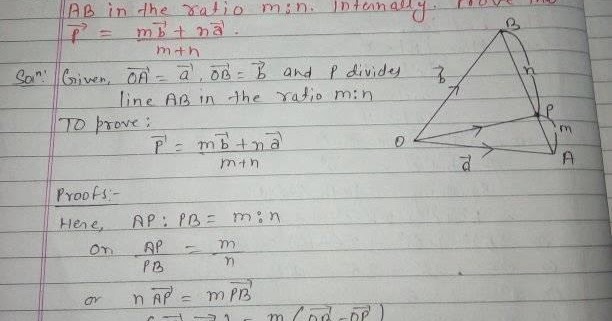 AB in the ratio m:n. Internally. Prove
p⃗ = mb⃗ + na⃗ / m+n
Soln: Given, OA⃗ = a⃗, OB⃗ = b⃗ and P divides
line AB in the ratio m:n
TO prove:
p⃗ = mb⃗ + na⃗ / m+n
Proofs:-
Here, AP : PB = m:n
or AP / PB = m / n
or nAP⃗ = mPB⃗
= m (OB⃗ - OP⃗)
B
b⃗
n
P
m
O
a⃗
A